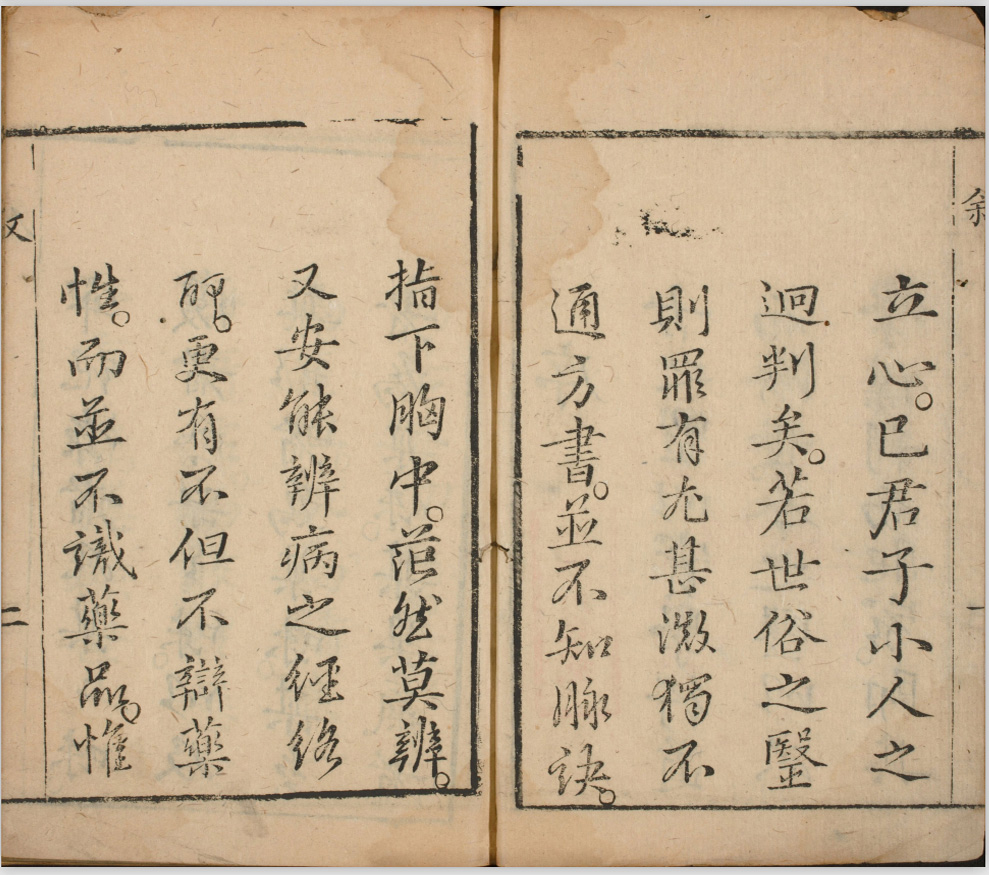 立心。已君子小人之
迥判矣。若世俗之毉
則罪有尤甚激獨不
通方書。並不知脉訣。
指下胸中。茫然莫辨。
又安能辨病之經絡
耶。更有不但不辯藥
性。而並不識藥品。惟
二